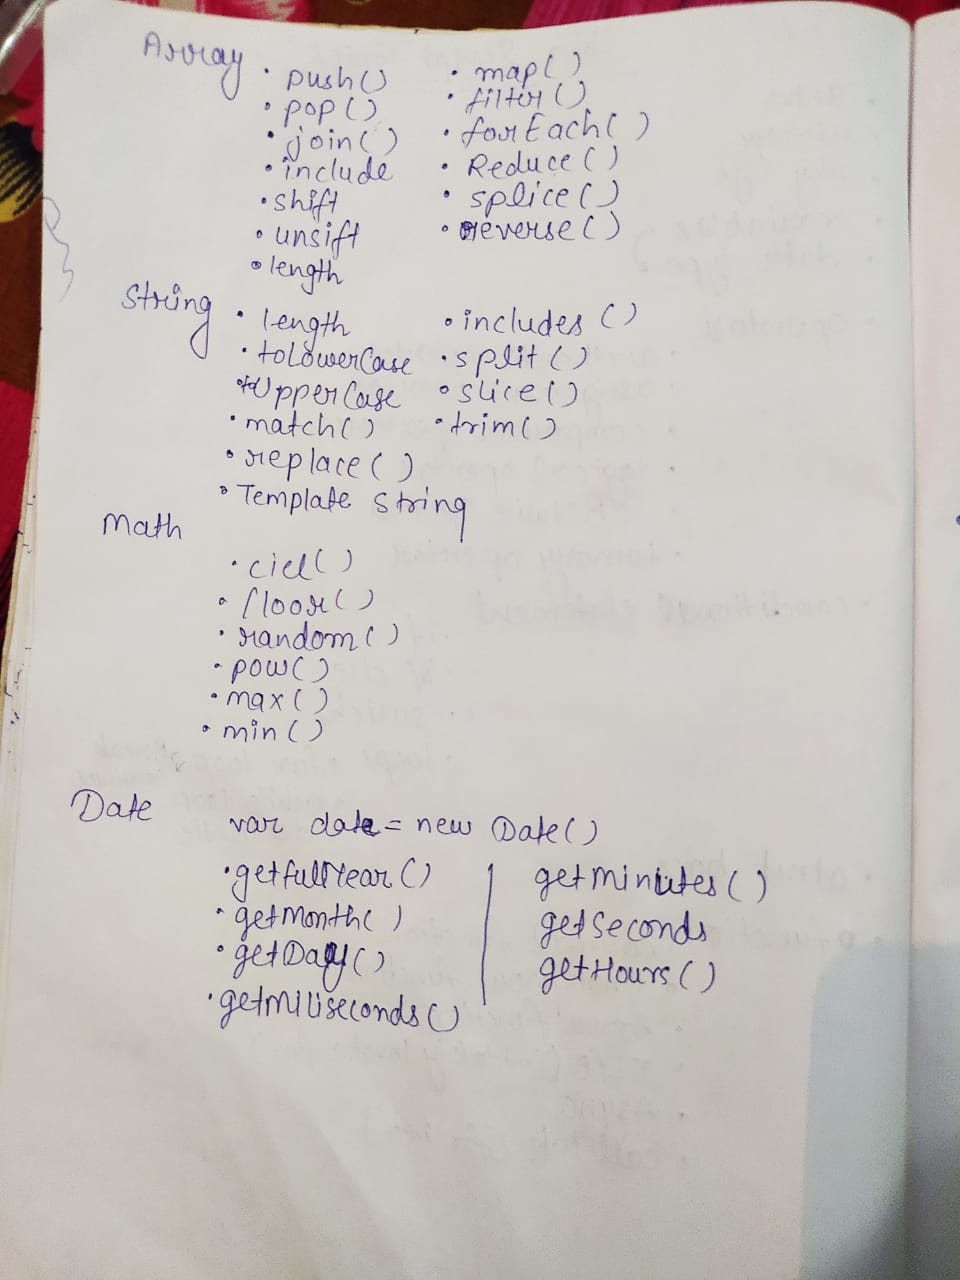 Array
• push()
• pop()
• join()
• include
• shift
• unsift
• length
• map()
• filter()
• forEach()
• Reduce()
• splice()
• reverse()
String
• length
• toLowerCase
• toUpperCase
• match()
• replace()
• Template string
• includes ()
• split()
• slice()
• trim()
Math
• ciel()
• floor()
• random()
• pow()
• max()
• min()
Date
var date = new Date()
• getfullYear()
• getMonth()
• getDay()
• getMiliseconds()
getMinutes()
getSeconds
getHours()